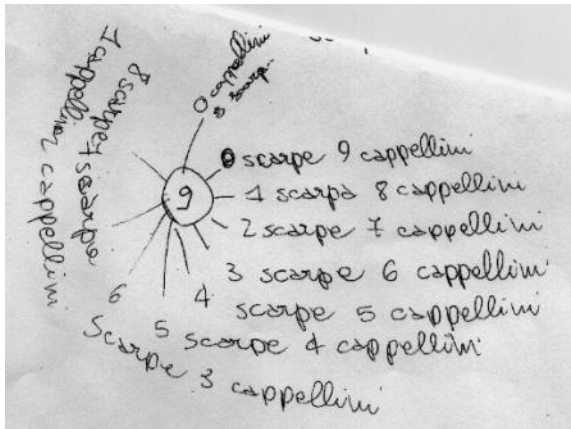 0 cappellini
scarp
0 scarpe 9 cappellini
9
1 scarpa 8 cappellini
2 scarpe 7 cappellini
3 scarpe 6 cappellini
4 scarpe 5 cappellini
5 scarpe 4 cappellini
6 scarpe 3 cappellini
7 scarpe 2 cappellini
8 scarpe 1 cappellini